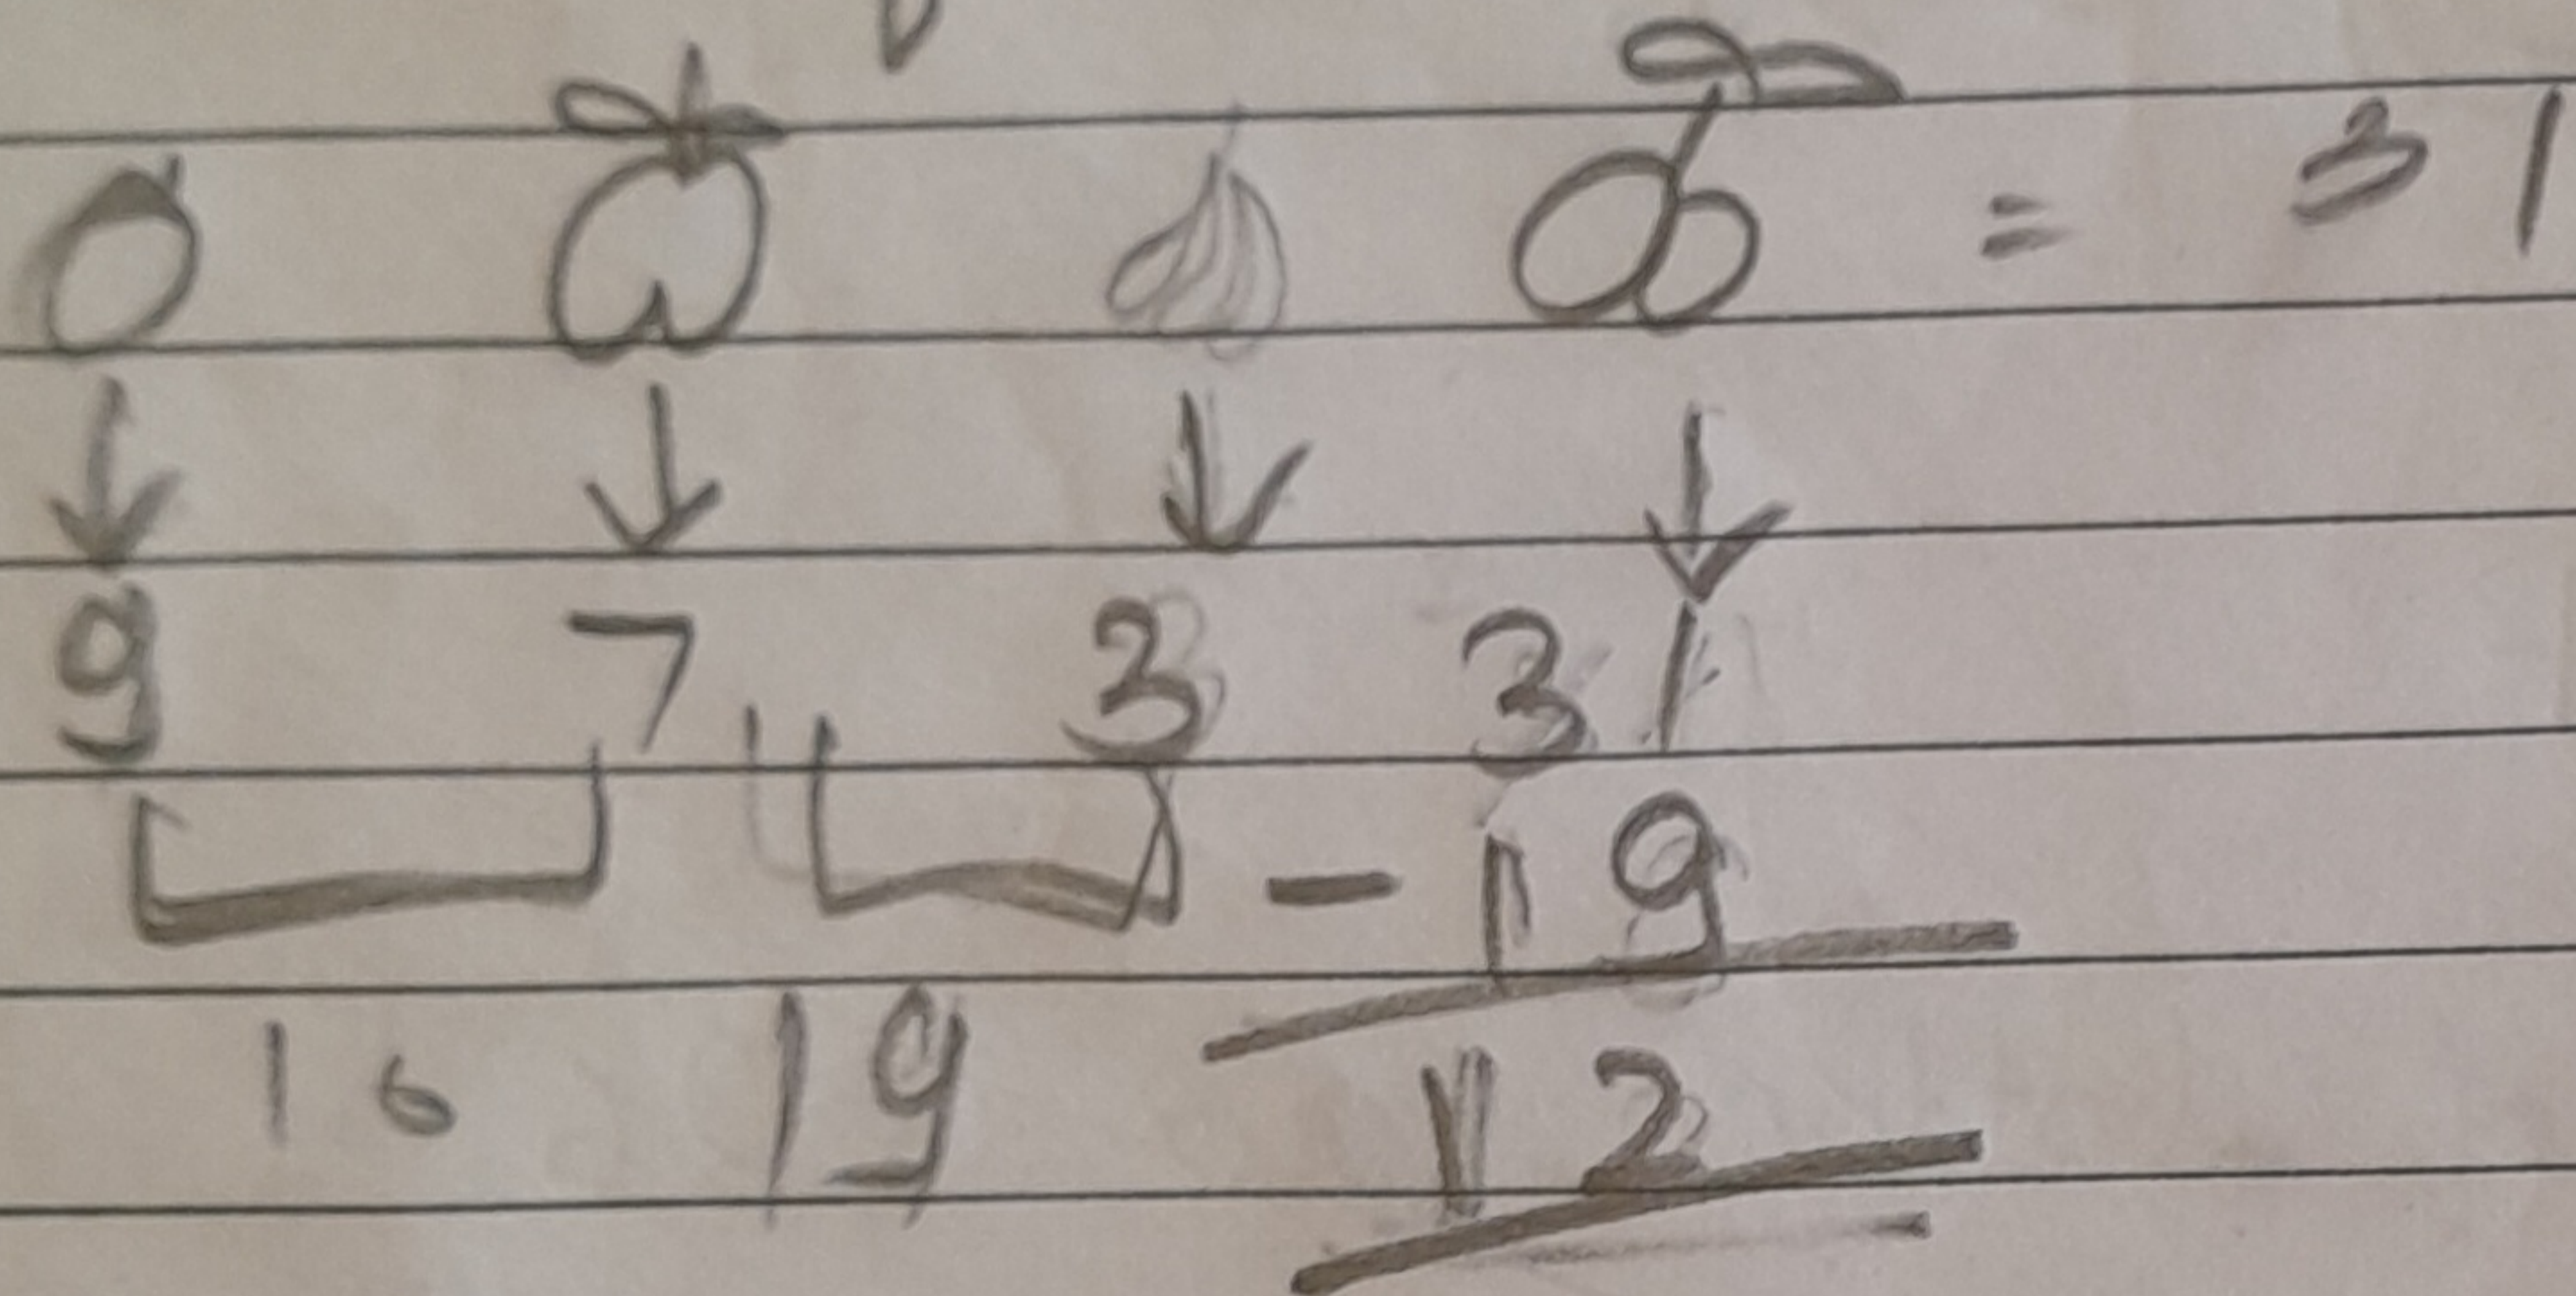 = 31
9 7 3 31
- 19
16 19 12